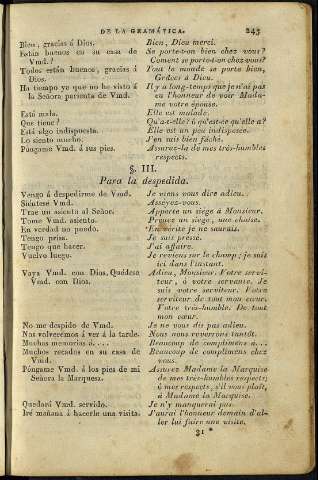 DE LA GRAMÁTICA. 243
Bien, gracias á Dios. Bien, Dieu merci.
Están buenos en su casa de Se porte-t-on bien chez vous?
Vmd.? Coment se porte-t-on chez vous?
Todos están buenos, gracias á Tout le monde se porte bien,
Dios. Grâces à Dieu.
Ha tiempo ya que no he visto á Il y a long-temps que je n'ai pas
la Señora parienta de Vmd. eu l'honneur de voir Mada-
me votre épouse.
Está mala. Elle est malade.
Que tiene? Qu'a-t-elle? ó qu'est-ce qu'elle a?
Está algo indispuesta. Elle est un peu indisposée.
Lo siento mucho. J'en suis bien fâché.
Póngame Vmd. á sus pies. Assurez-la de mes très-humbles
respects.
§. III.
Para la despedida.
Vengo á despedirme de Vmd. Je viens vous dire adieu.
Siéntese Vmd. Asseyez-vous.
Trae un asiento al Señor. Apporte un siège à Monsieur.
Tome Vmd. asiento. Prenez un siège, une chaise.
En verdad no puedo. En vérité je ne saurais.
Tengo prisa. Je suis pressé.
Tengo que hacer. J'ai affaire.
Vuelvo luego. Je reviens sur le champ; je suis
ici dans l'instant.
Vaya Vmd. con Dios, Quédese Adieu, Monsieur. Votre servi-
Vmd. con Dios. teur, ó votre servante. Je
suis votre serviteur. Votre
serviteur de tout mon cœur.
Votre très-humble. De tout
mon cœur.
No me despido de Vmd. Je ne vous dit pas adieu.
Nos volveremos á ver á la tarde. Nous nous reverrons tantôt.
Muchas memorias á.... Beaucoup de complimens a...
Muchos recados en su casa de Beaucoup de complimens chez
Vmd. vous.
Póngame Vmd. á los pies de mi Assurez Madame la Marquise
Señora la Marquesa. de mes très-humbles respects;
ó mes respects, s'il vous plaît,
à Madame la Marquise.
Quedará Vmd. servido. Je n'y manquerai pas.
Iré mañana á hacerle una visita. J'aurai l'honneur demain d'al-
ler lui faire une visite.
31 *